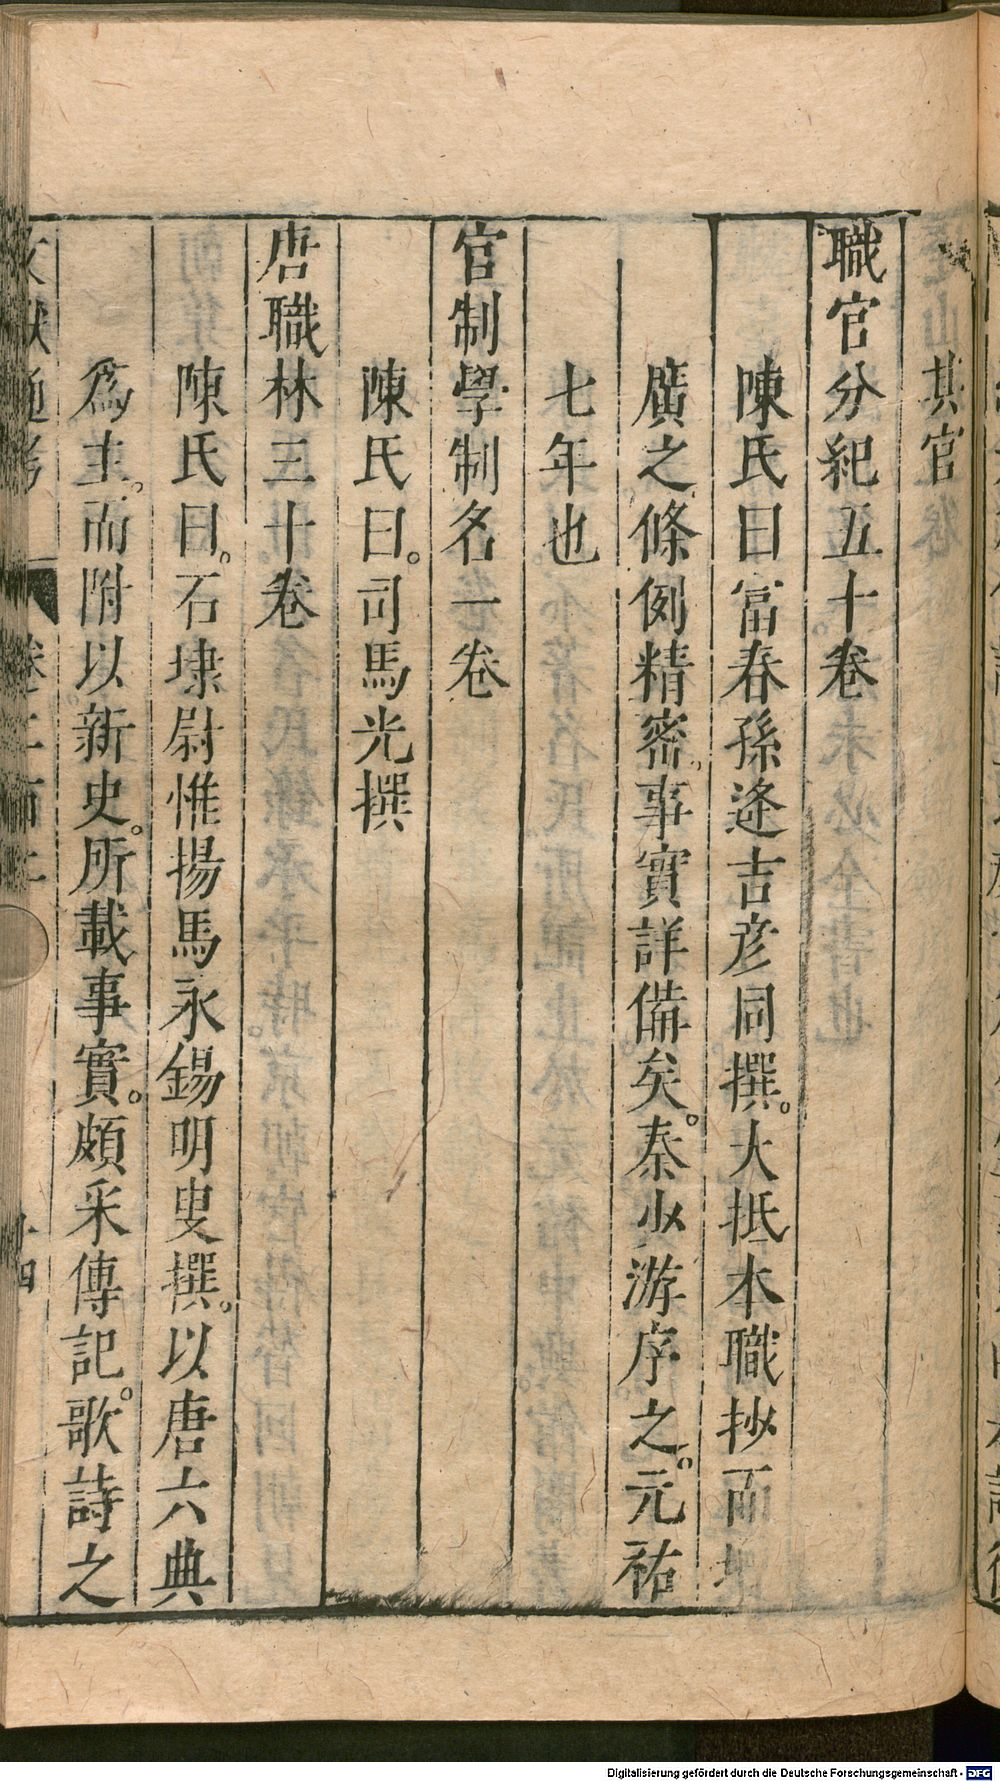 其官
職官分紀五十卷
陳氏曰富春孫逢吉彦同撰。大抵本職抄而増
廣之條例精密。事實詳備矣。秦少游序之。元祐
七年也
官制學制名一卷
陳氏曰。司馬光撰
唐職林三十卷
陳氏曰。石埭尉惟揚馬永錫明叟撰。以唐六典
爲主。而附以新史。所載事實。頗采傳記。歌詩之
文獻通考 卷二百二 十四
Digitalisierung gefördert durch die Deutsche Forschungsgemeinschaft - DFG